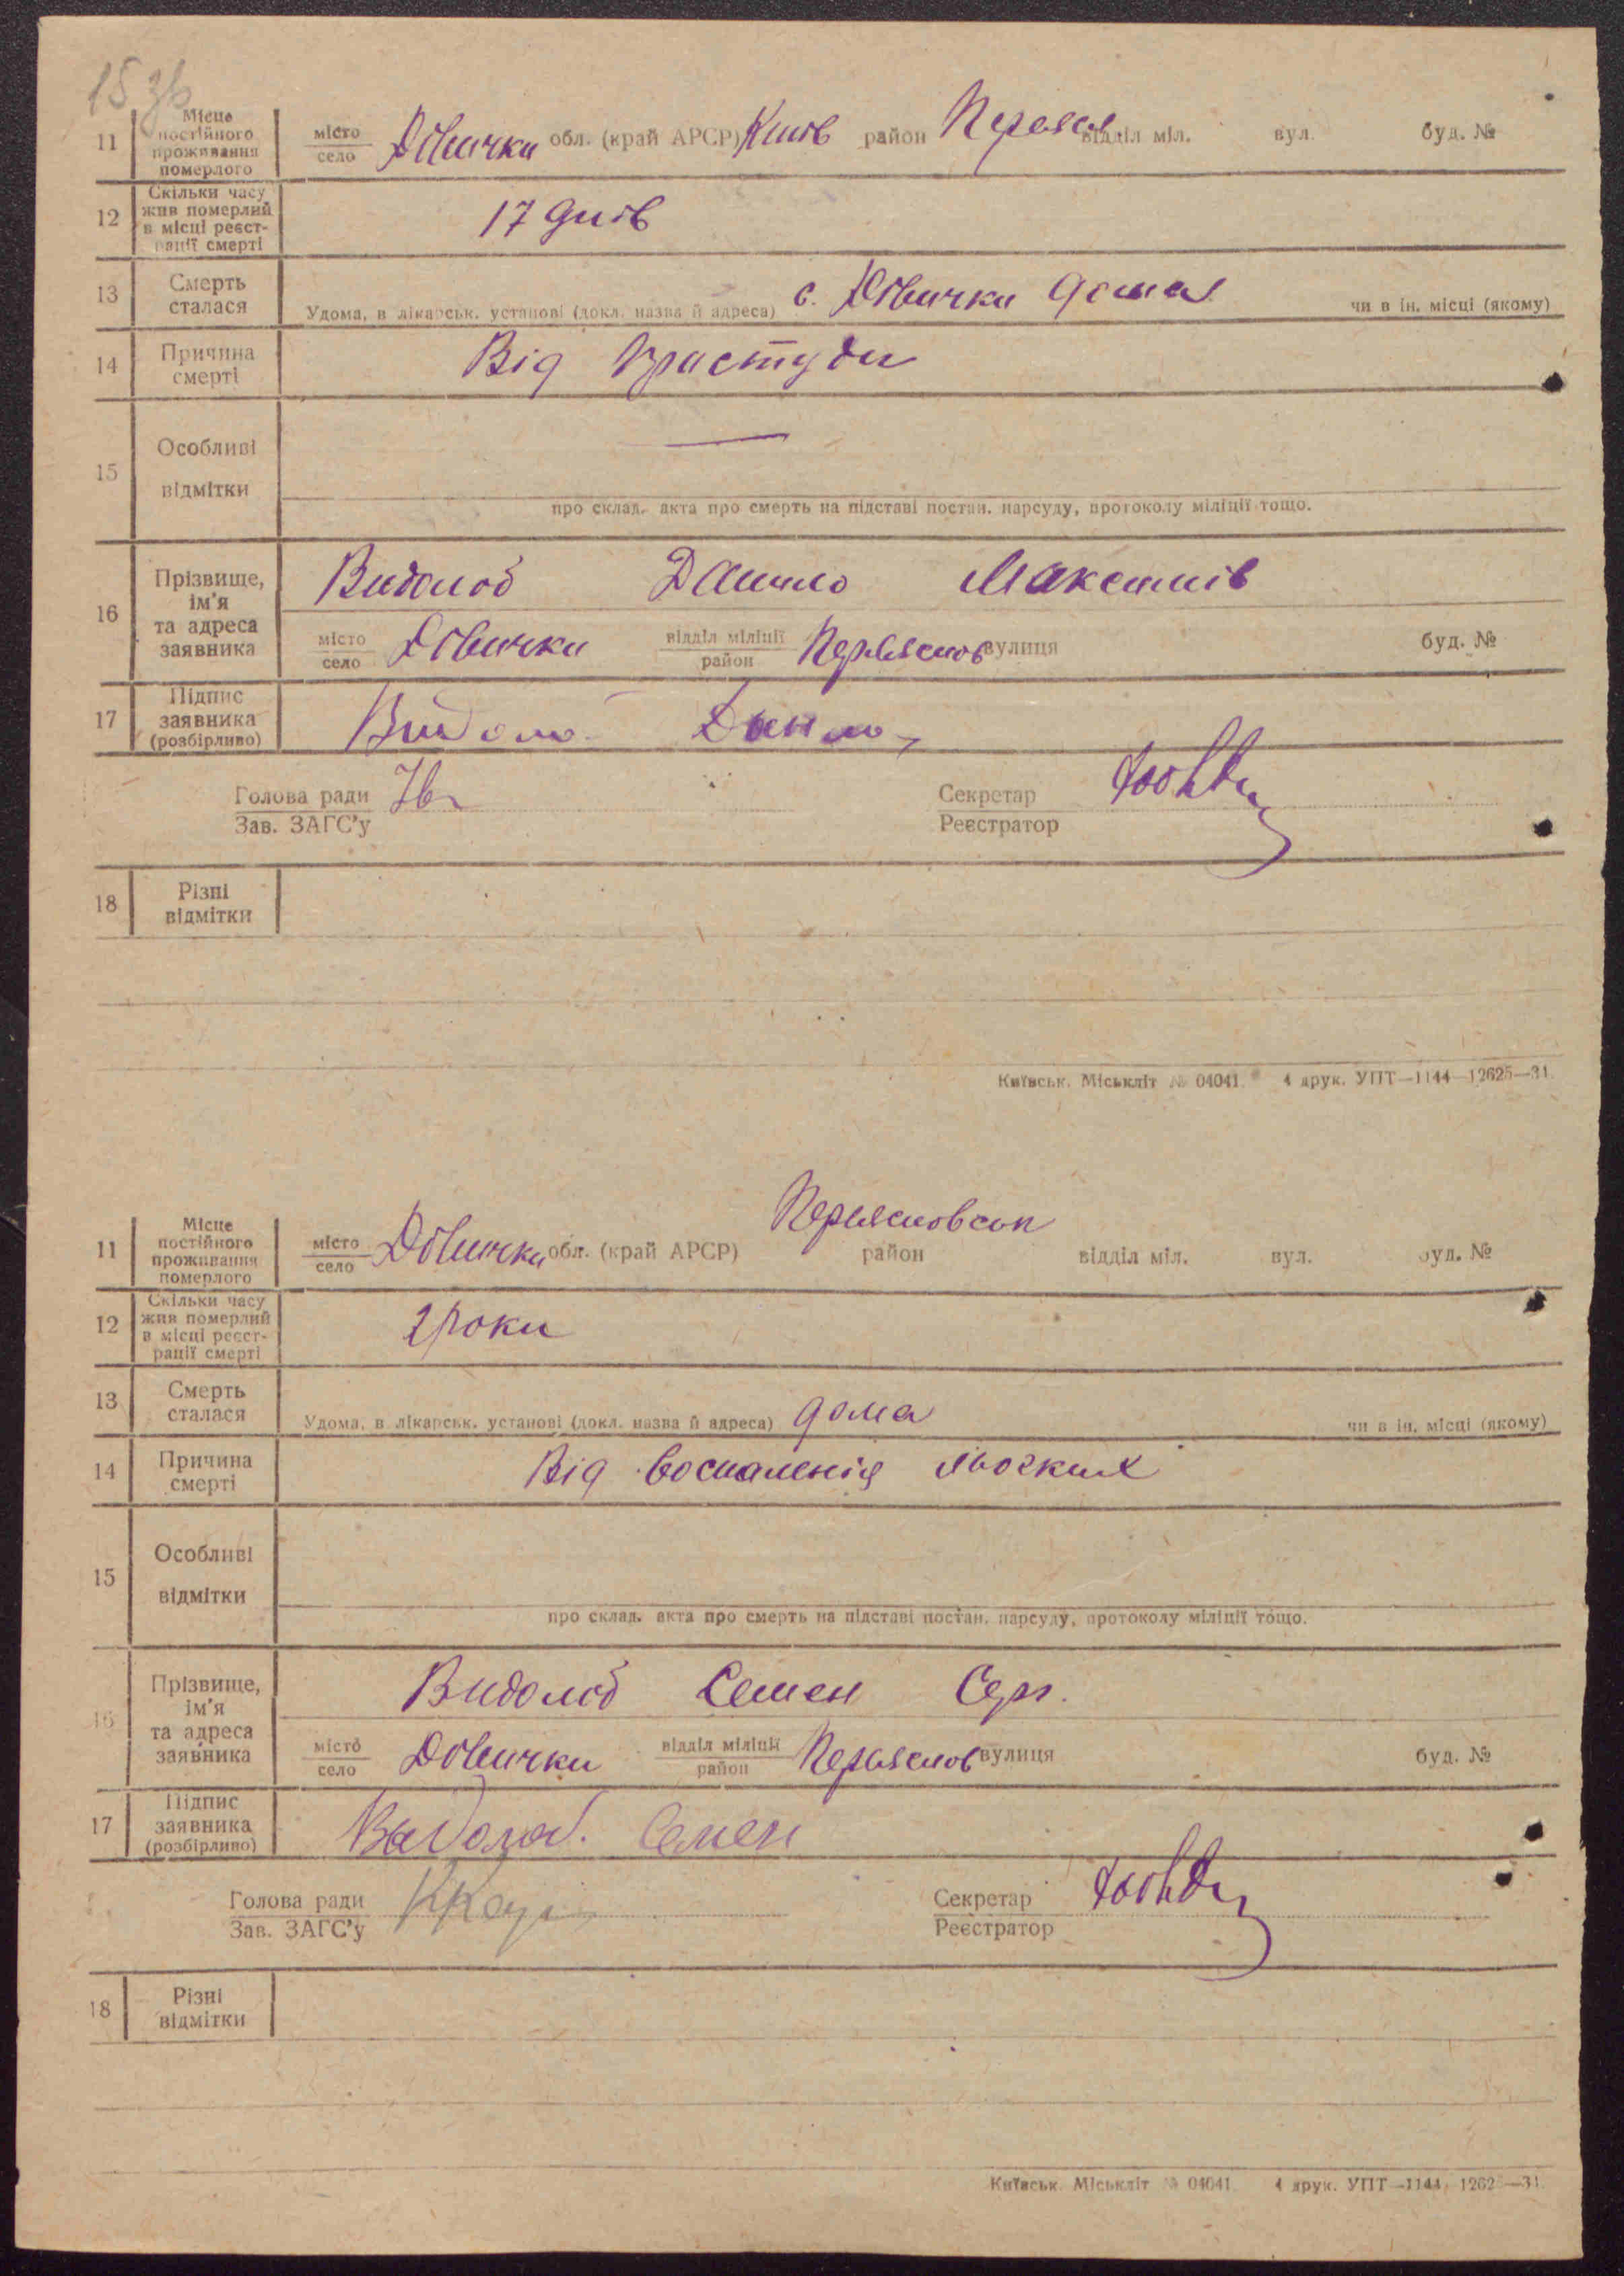 15 зв
11 Місце постійного проживання померлого місто село Дівички обл. (край АРСР) Київ район Переясл відділ міл. вул. буд. №
12 Скільки часу жив померлий в місці реєстрації смерті 17 днів
13 Смерть сталася Удома, в лікарськ. установі (докл. назва й адреса) с. Дівички дома чи в ін. місці (якому)
14 Причина смерті Від простуди
15 Особливі відмітки —
про склад. акта про смерть на підставі постан. нарсуду, протоколу міліції тощо.
16 Прізвище, ім'я та адреса заявника Видолоб Данило Максимів
місто село Дівички відділ міліції район Переяслов вулиця буд. №
17 Підпис заявника (розбірливо) Данило
Голова ради Зав. ЗАГС'у
Секретар Реєстратор
18 Різні відмітки
Київськ. Міськліт № 04041. 4 друк. УПТ—1144—12625—31.
11 Місце постійного проживання померлого місто село Дівички обл. (край АРСР) Переясловськ район відділ міл. вул. буд. №
12 Скільки часу жив померлий в місці реєстрації смерті 2 роки
13 Смерть сталася Удома, в лікарськ. установі (докл. назва й адреса) дома чи в ін. місці (якому)
14 Причина смерті Від воспаленія льогких
15 Особливі відмітки
про склад. акта про смерть на підставі постан. нарсуду, протоколу міліції тощо.
16 Прізвище, ім'я та адреса заявника Видолоб Семен Серг.
місто село Дівички відділ міліції район Переяслов вулиця буд. №
17 Підпис заявника (розбірливо) Видолоб. Семен
Голова ради Зав. ЗАГС'у
Секретар Реєстратор
18 Різні відмітки
Київськ. Міськліт № 04041. 4 друк. УПТ—1144—12625—31.